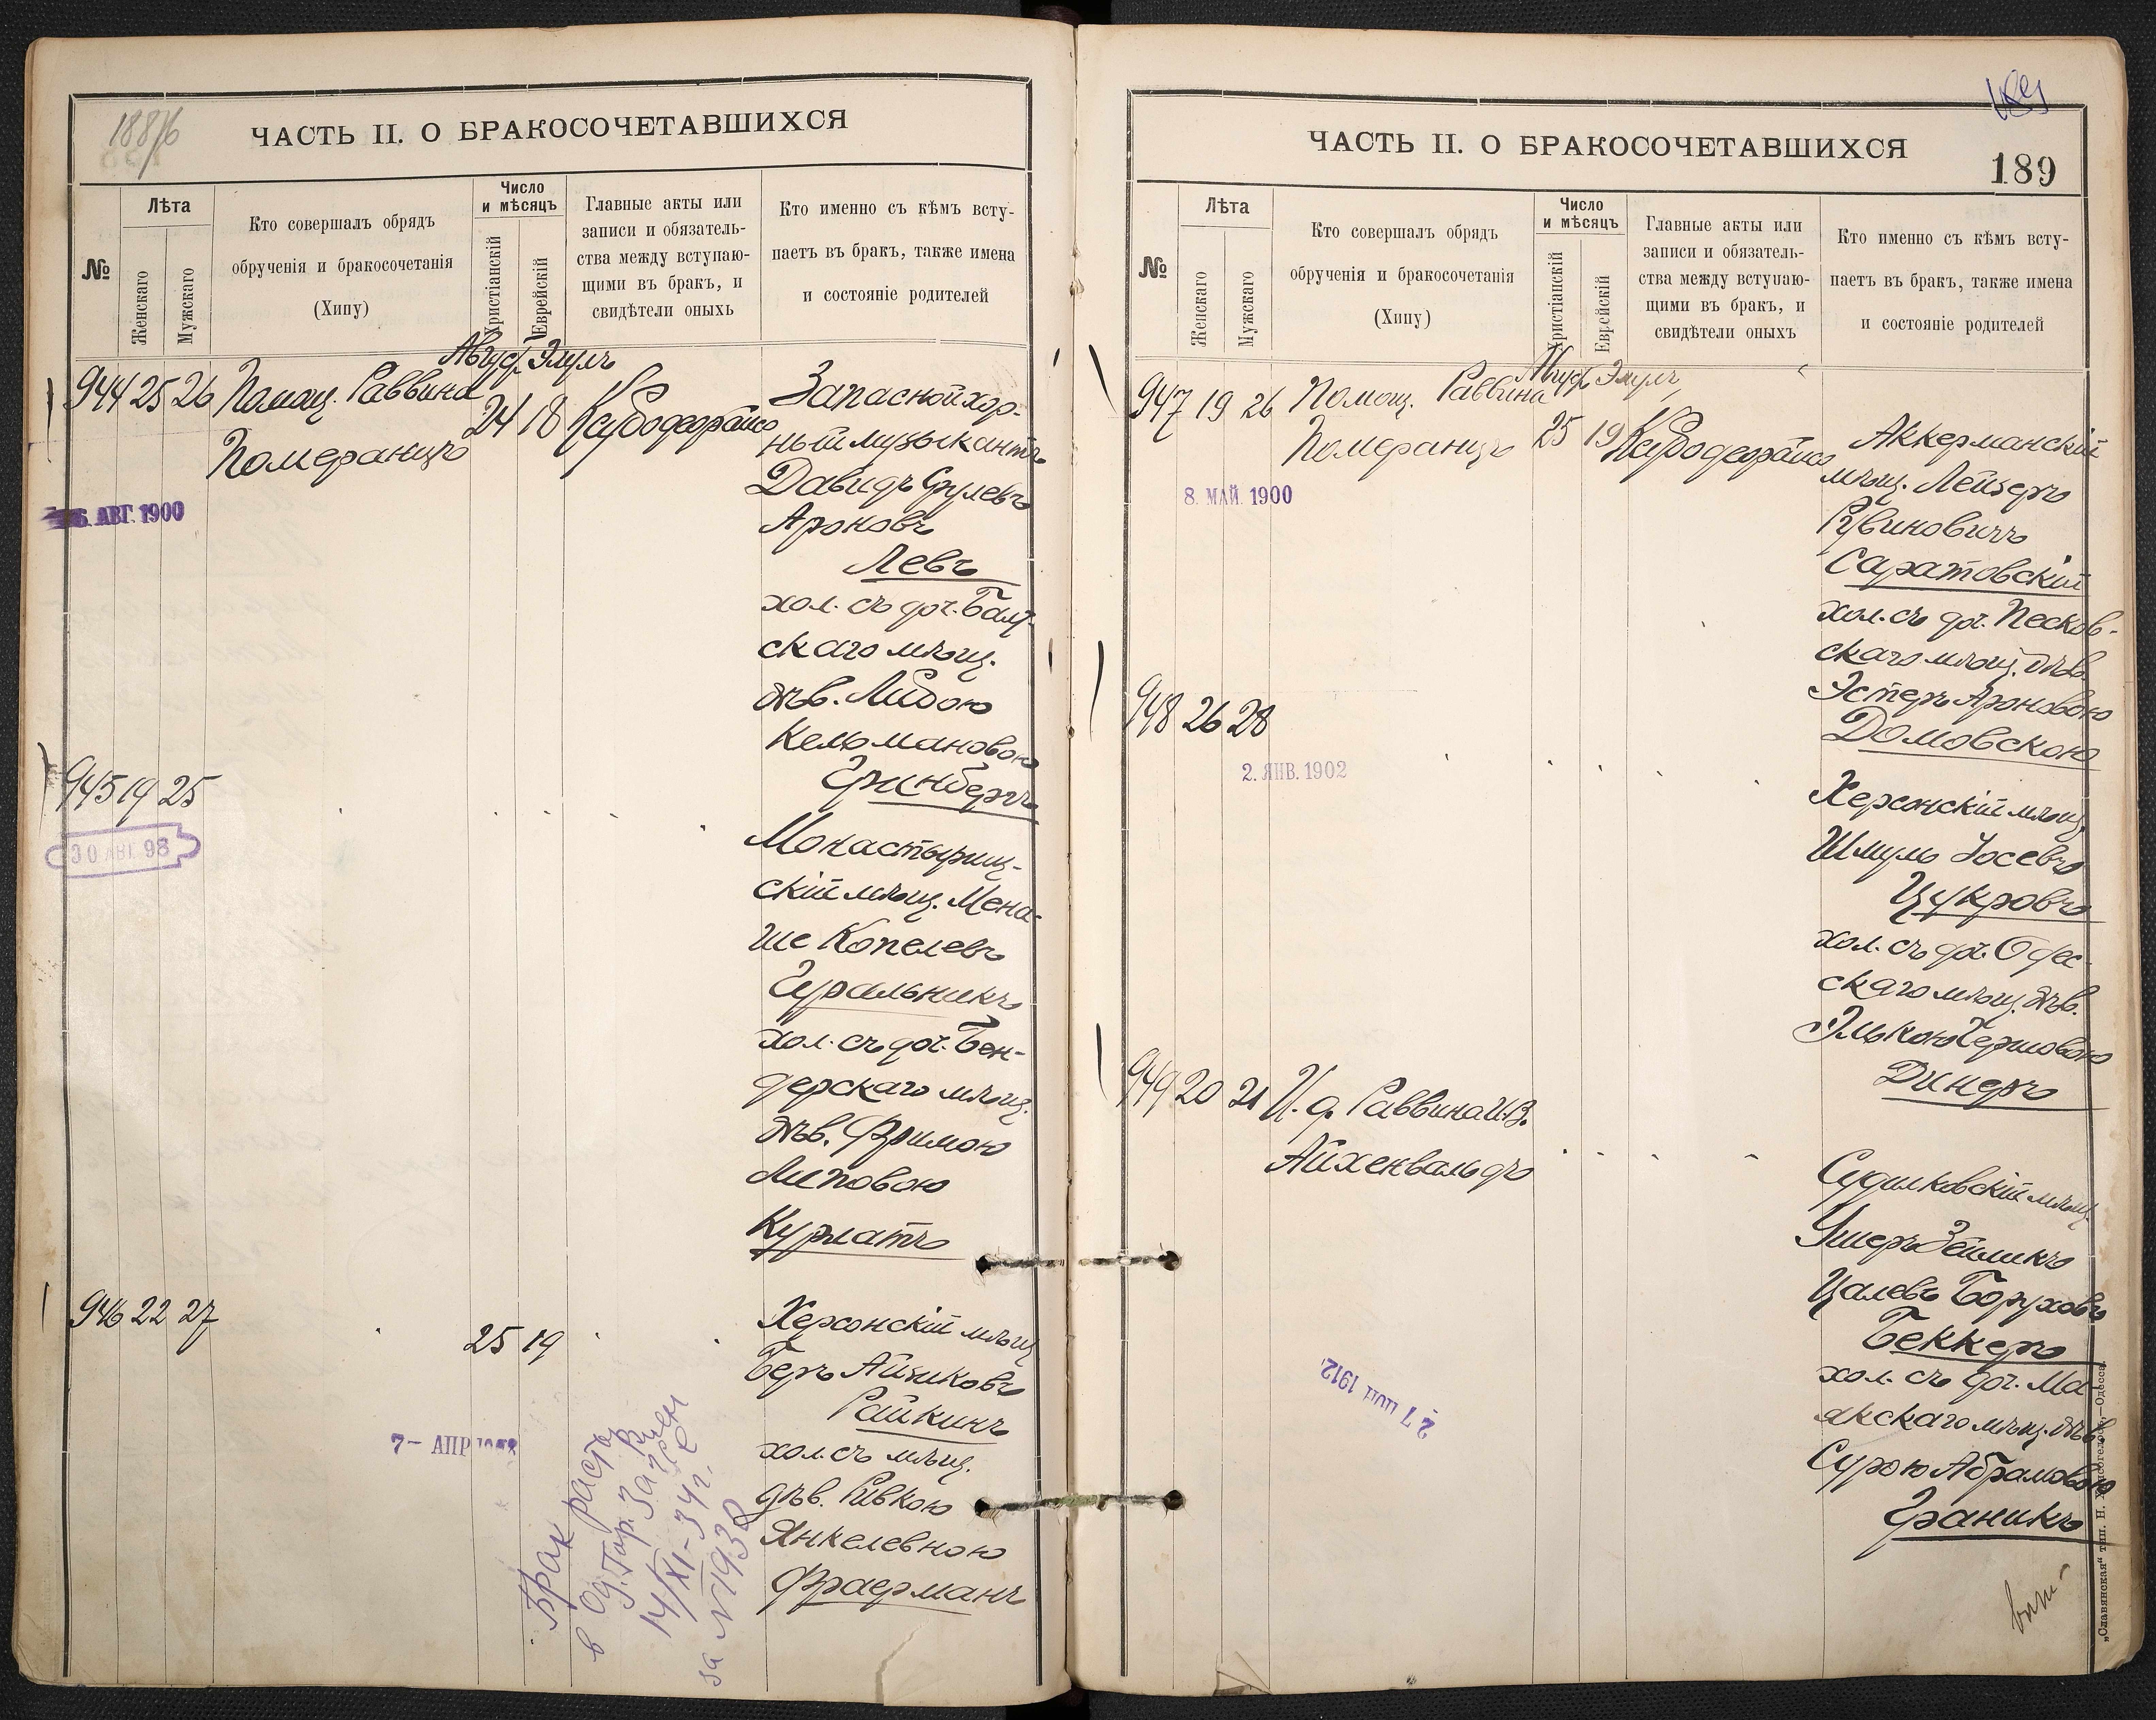 188/б
ЧАСТЬ II. О БРАКОСОЧЕТАВШИХСЯ
№
Лѣта
Женскаго
Мужскаго
Кто совершалъ обрядъ
обрученія и бракосочетанія
(Хипу)
Число
и мѣсяцъ
Христіанскій
Еврейскій
Главные акты или
записи и обязатель-
ства между вступаю-
щими въ бракъ, и
свидѣтели оныхъ
Кто именно съ кѣмъ всту-
паетъ въ бракъ, также имена
и состояніе родителей
Август. Элулъ
944 25 26 Помощ. Раввина 24 18
Померанцъ
6. АВГ. 1900
Запасной хор-
ный музыкантъ
Давидъ Срулевъ
Ароновъ
Левъ
хол. съ доч. Балт-
скаго мѣщ.
дѣв. Либою
Кельмановою
Гринбергъ
945 19 25
30 АВГ. 98
Монастырищ-
скій мѣщ. Мена-
ше Копелевъ
Гуральникъ
хол. съ доч. Бен-
дерскаго мѣщ.
дѣв. Фримою
Липовою
Курлатъ
946 22 27 25 19
7- АПР
Херсонскій мѣщ.
Беръ Айзиковъ
Райкинъ
хол. съ мѣщ.
дѣв. Ривкою
Янкелевною
Фраерманъ
Брак расторг
14/XI-34 г.
за № 1930
189
ЧАСТЬ II. О БРАКОСОЧЕТАВШИХСЯ
№
Лѣта
Женскаго
Мужскаго
Кто совершалъ обрядъ
обрученія и бракосочетанія
(Хипу)
Число
и мѣсяцъ
Христіанскій
Еврейскій
Главные акты или
записи и обязатель-
ства между вступаю-
щими въ бракъ, и
свидѣтели оныхъ
Кто именно съ кѣмъ всту-
паетъ въ бракъ, также имена
и состояніе родителей
Август. Элулъ
947 19 26 Помощ. Раввина 25 19
Померанцъ
8. МАЙ. 1900
Аккерманскій
мѣщ. Лейзеръ
Рувиновичъ
Саратовскій
хол. съ доч. Песков-
скаго мѣщ. дѣв.
Эстеръ Ароновою
Домовскою
948 26 28
2. ЯНВ. 1902
Херсонскій мѣщ.
Шмуль Іосевъ
Цукровъ
хол. съ доч. Одес-
скаго мѣщ. дѣв.
Элькою Гершовою
Динеръ
949 20 21 И. д. Раввина И. В.
Айхенвальдъ
27 1912
Судилковскій мѣщ.
Ушеръ Зейликъ
Цалевъ Боруховъ
Беккеръ
хол. съ доч. Ма-
якскаго мѣщ. дѣв.
Сурою Абрамовою
Граникъ
„Славянская“ тип. Н. Хрисогелосъ.—Одесса.